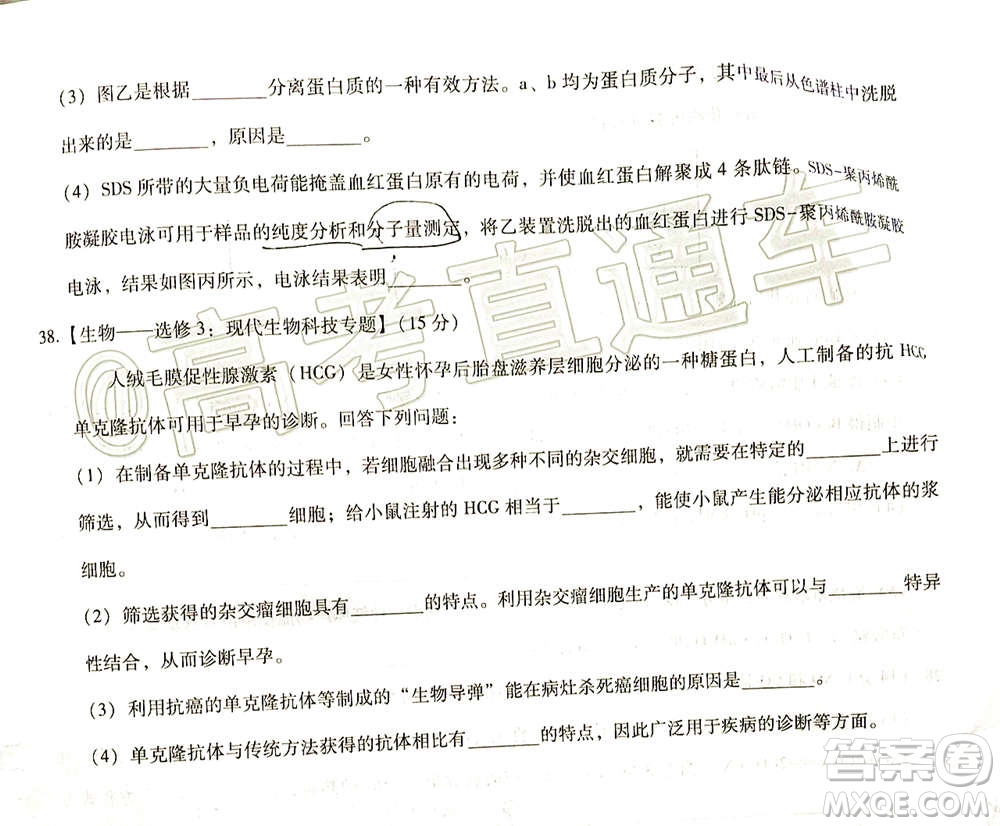 (3) 图乙是根据________分离蛋白质的一种有效方法。a、b 均为蛋白质分子，其中最后从色谱柱中洗脱
出来的是________，原因是________。
(4) SDS 所带的大量负电荷能掩盖血红蛋白原有的电荷，并使血红蛋白解聚成 4 条肽链。SDS-聚丙烯酰
胺凝胶电泳可用于样品的纯度分析和分子量测定，将乙装置洗脱出的血红蛋白进行 SDS-聚丙烯酰胺凝胶
电泳，结果如图丙所示，电泳结果表明________。
38.【生物——选修 3：现代生物科技专题】(15 分)
人绒毛膜促性腺激素（HCG）是女性怀孕后胎盘滋养层细胞分泌的一种糖蛋白，人工制备的抗 HCG
单克隆抗体可用于早孕的诊断。回答下列问题：
(1) 在制备单克隆抗体的过程中，若细胞融合出现多种不同的杂交细胞，就需要在特定的________上进行
筛选，从而得到________细胞；给小鼠注射的 HCG 相当于________，能使小鼠产生能分泌相应抗体的浆
细胞。
(2) 筛选获得的杂交瘤细胞具有________的特点。利用杂交瘤细胞生产的单克隆抗体可以与________特异
性结合，从而诊断早孕。
(3) 利用抗癌的单克隆抗体等制成的“生物导弹”能在病灶杀死癌细胞的原因是________。
(4) 单克隆抗体与传统方法获得的抗体相比有________的特点，因此广泛用于疾病的诊断等方面。
@高考直通车
答案卷
MXQE.COM